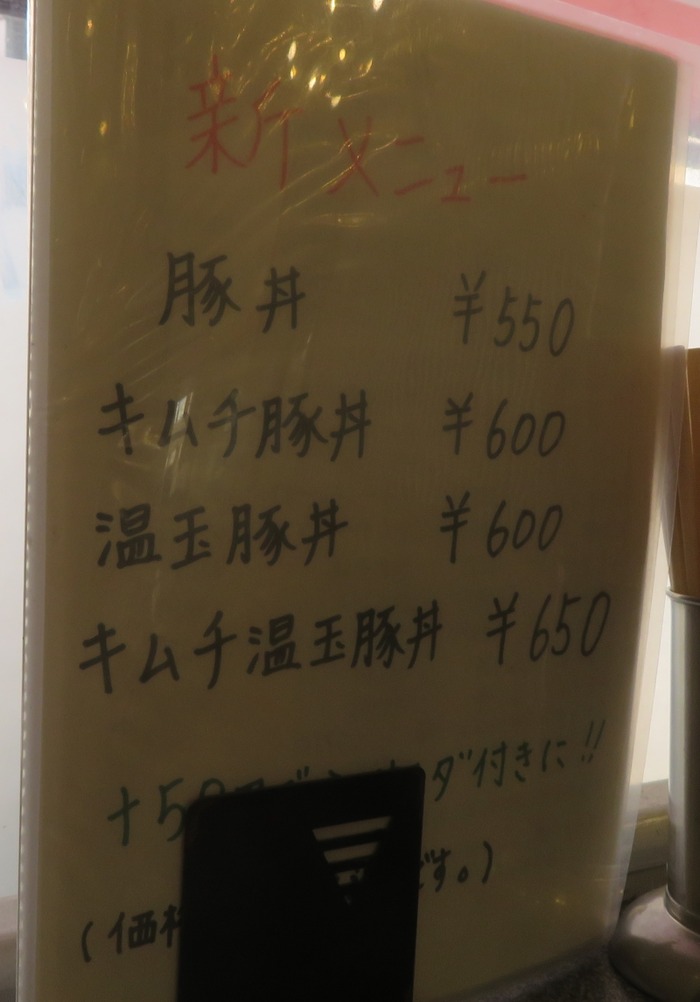 新メニュー
豚丼 ¥550
キムチ豚丼 ¥600
温玉豚丼 ¥600
キムチ温玉豚丼 ¥650
+50 ダ付きに!!
(価格 です。)